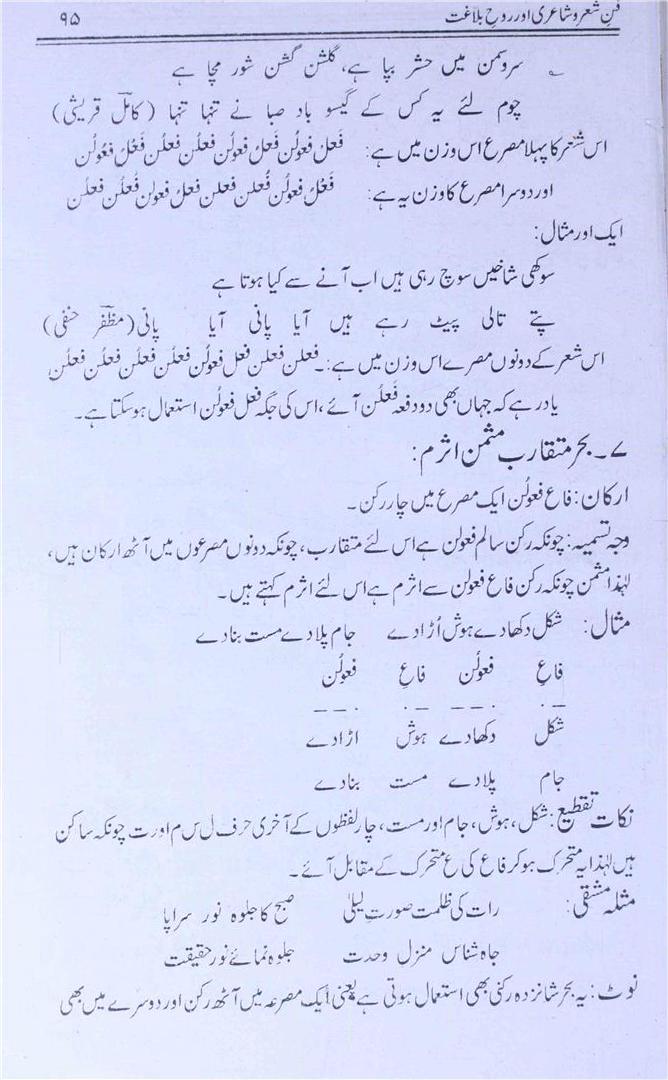 فنِ شعر و شاعری اور روحِ بلاغت ۹۵
سرو سمن میں حشر بپا ہے، گلشن گلشن شور مچا ہے
چوم لئے یہ کس کے گیسو باد صبا نے تنہا تنہا (کاملؔ قریشی)
اس شعر کا پہلا مصرع اس وزن میں ہے: فَعلُ فعولُن فَعلُ فعولُن فعلُن فعلُن فَعْلُ فَعُولُن
اور دوسرا مصرع کا وزن یہ ہے: فَعْلُ فعولُن فعْلن فعلن فعلُ فعولن فعْلُن فعلُن
ایک اور مثال:
سوکھی شاخیں سوچ رہی ہیں اب آنے سے کیا ہوتا ہے
پتے تالی پیٹ رہے ہیں آیا پانی آیا پانی (مظفرؔ حنفی)
اس شعر کے دونوں مصرے اس وزن میں ہے:۔ فعلن فعلن فعل فعولُن فعلُن فعلُن فعلُن فعلُن
یاد رہے کہ جہاں بھی دو دفعہ فَعلُن آئے، اس کی جگہ فعل فعولُن استعمال ہو سکتا ہے۔
۷۔ بحر متقارب مثمن اثرم:
ارکان: فاع فعولُن ایک مصرع میں چار رکن۔
وجہ تسمیہ: چونکہ رکن سالم فعولن ہے اس لئے متقارب، چونکہ دونوں مصرعوں میں آٹھ ارکان ہیں،
لہٰذا مثمن چونکہ رکن فاع فعولن سے اثرم ہے اس لئے اثرم کہتے ہیں۔
مثال: شکل دکھا دے ہوش اُڑا دے جام پلا دے مست بنا دے
فاعِ فعولُن فاعِ فعولُن
شکل دکھا دے ہوش اڑا دے
جام پلا دے مست بنا دے
نکات تقطیع: شکل، ہوش، جام اور مست، چار لفظوں کے آخری حرف ل س م اور ت چونکہ ساکن
ہیں لہٰذا یہ متحرک ہو کر فاع کی ع متحرک کے مقابل آئے۔
مثلہ مشقی: رات کی ظلمت صورتِ لیلیٰ صبح کا جلوہ نور سراپا
جاہ شناس منزل وحدت جلوہ نمائے نور حقیقت
نوٹ: یہ بحر شانزدہ رکنی بھی استعمال ہوتی ہے یعنی ایک مصرعہ میں آٹھ رکن اور دوسرے میں بھی